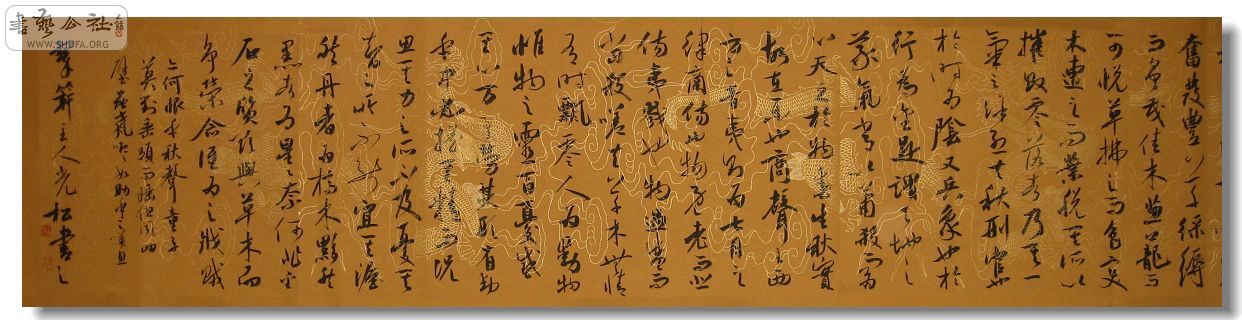 豐草綠縟
而爭茂佳木蔥蘢而
可悅草拂之而色變
木遭之而葉脫其所以
摧敗零落者乃其一
氣之餘烈夫秋刑官也
於時為陰又兵象也於
行為金是謂天地之
義氣常以肅殺而為
心天之於物春生秋實
故其在樂也商聲主西
方之音夷則為七月之
律商傷也物既老而悲
傷夷戮也物過盛而
當殺嗟夫草木無情
有時飄零人為動物
惟物之靈百憂感
其心萬事勞其形有動
於中必搖其精而況
思其力之所不及憂其
智之所不能宜其渥
然丹者為槁木黟然
黑者為星星奈何非金
石之質欲與草木而
爭榮念誰為之戕賊
亦何恨乎秋聲童子
莫對垂頭而睡但聞四
壁蟲聲唧唧如助予之嘆息
主人光松書之
書藝公社
WWW.SHUFA.ORG